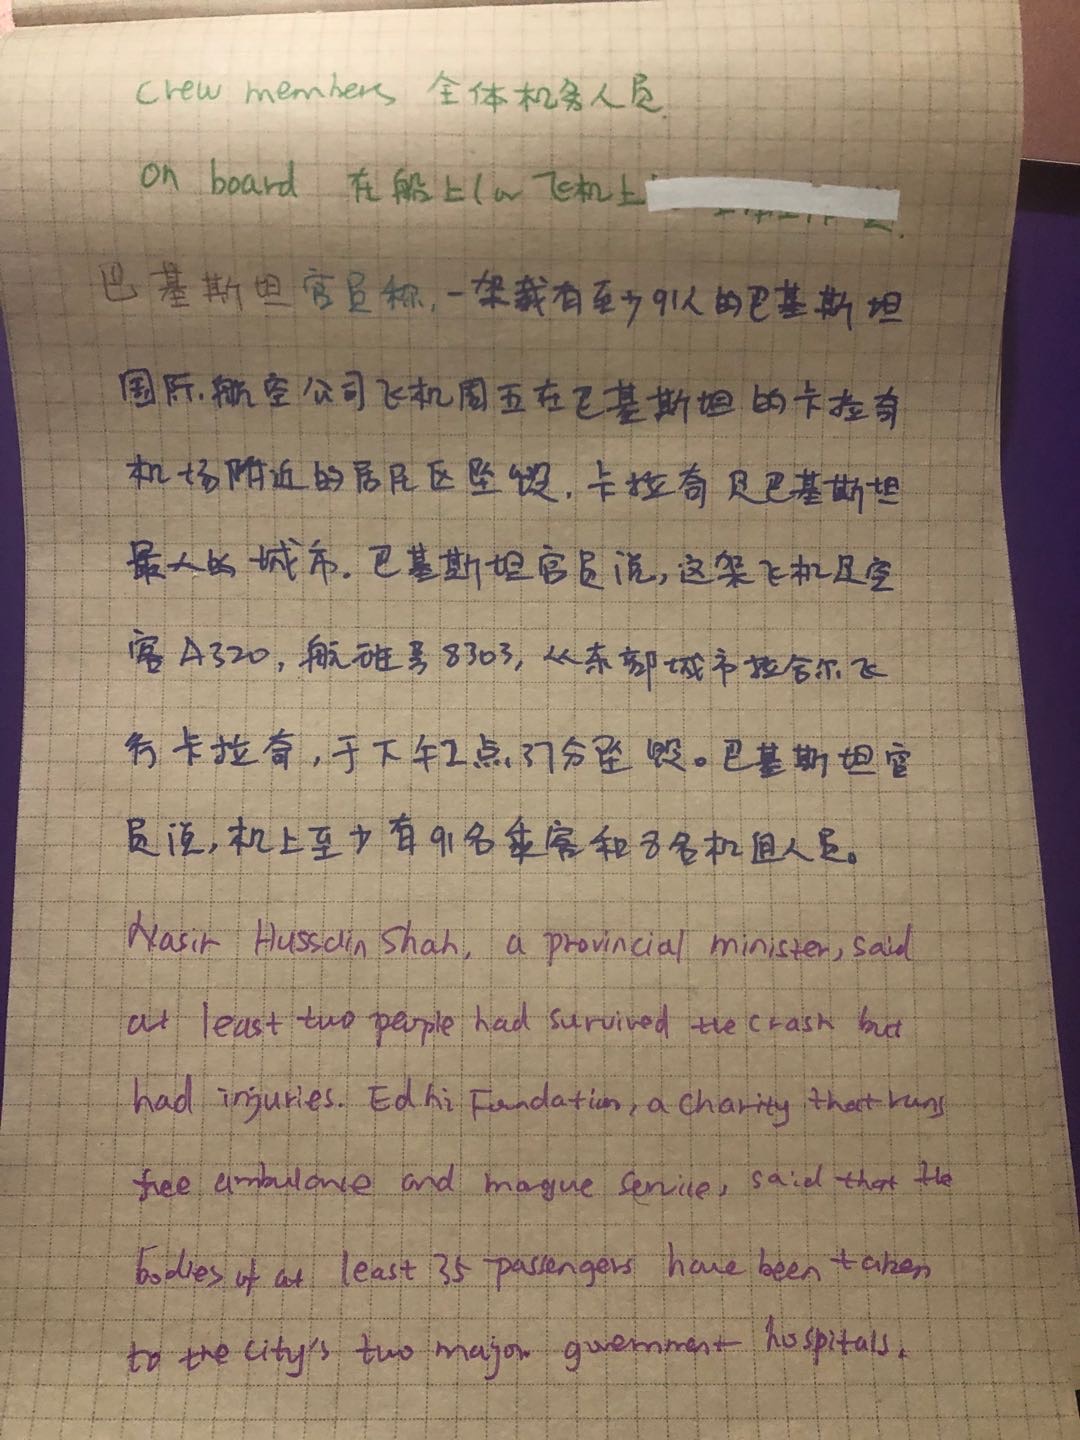 crew members 全体机务人员
on board 在船上(或飞机上
巴基斯坦官员称,一架载有至少91人的巴基斯坦
国际航空公司飞机周五在巴基斯坦的卡拉奇
机场附近的居民区坠毁.卡拉奇是巴基斯坦
最大的城市.巴基斯坦官员说,这架飞机是空
客A320,航班号8303,从东部城市拉合尔飞
行卡拉奇,于下午2点37分坠毁。巴基斯坦官
员说,机上至少有91名乘客和8名机组人员。
Nasir Hussain Shah, a provincial minister, said
at least two people had survived the crash but
had injuries. Edhi Foundation, a charity that runs
free ambulance and morgue service, said that the
bodies of at least 35 passengers have been taken
to the city's two major government hospitals.